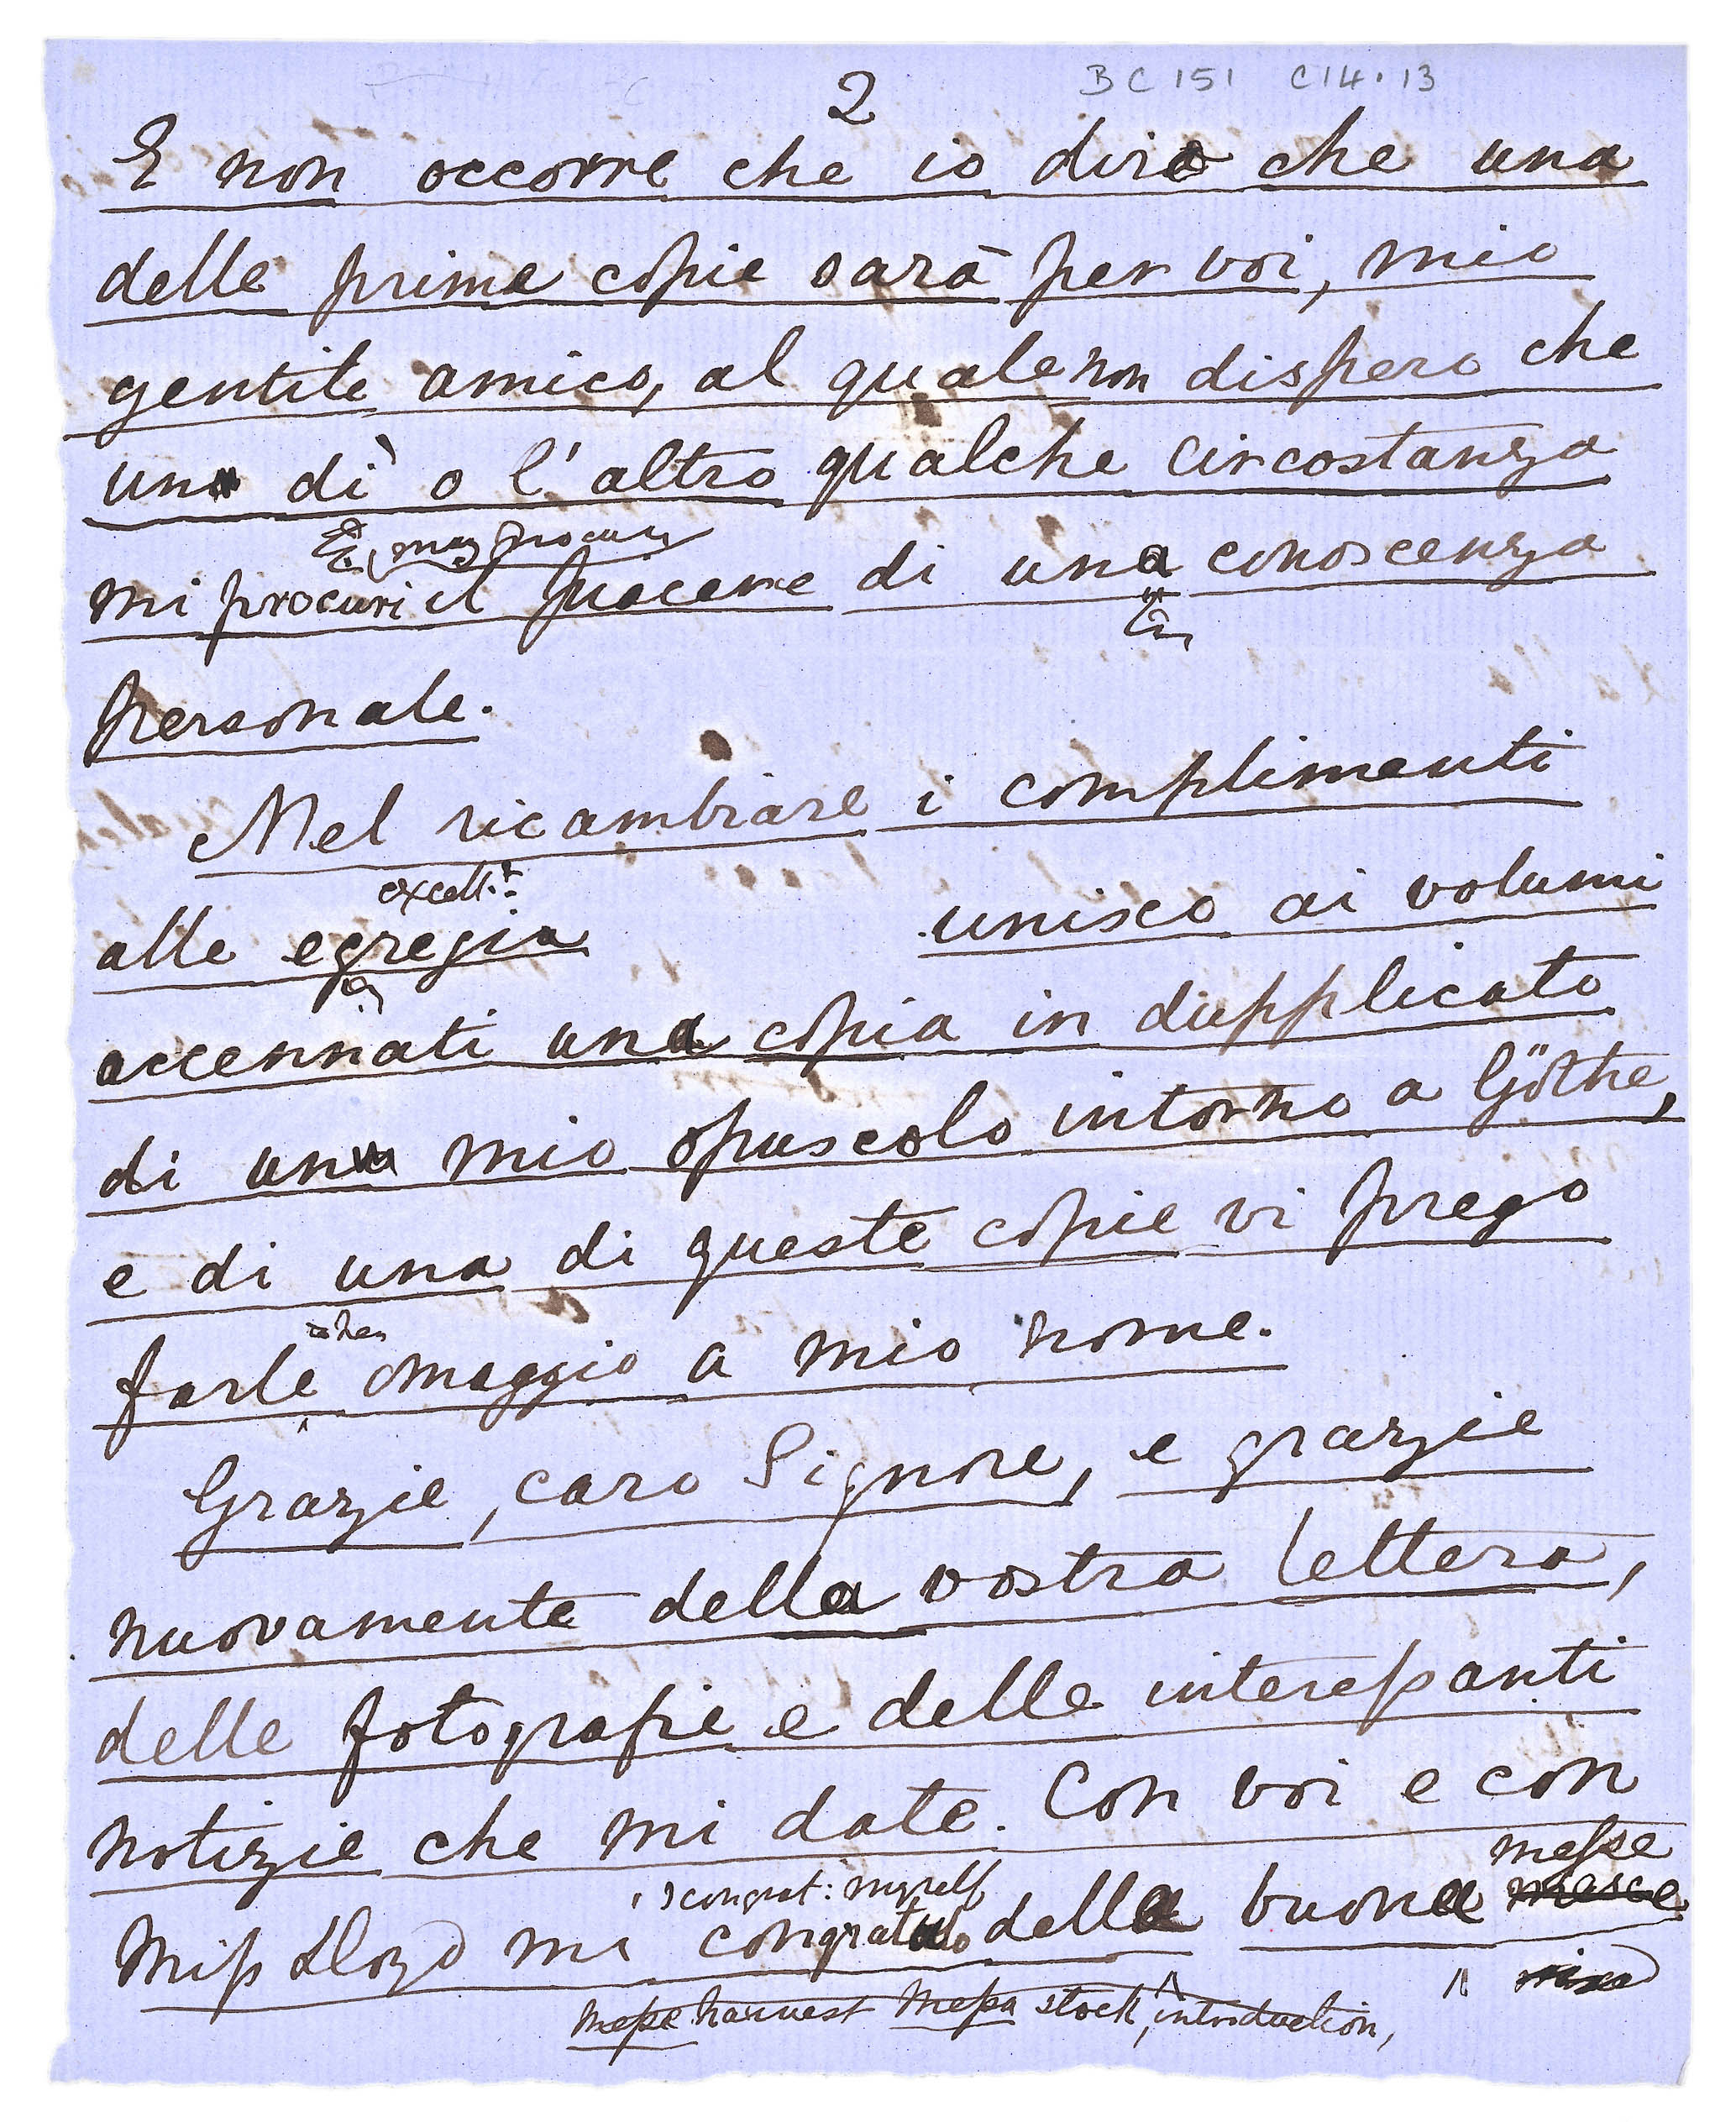 BC 151 C14.13
2
E non occorre che io dirò che una
delle prime copie sarà per voi, mio
gentile amico, al quale non dispero che
uno dì o l'altro qualche circostanza
may procure
mi procuri il piacere di una conoscenza
personale.
Nel ricambiare i complimenti
excellt
alle egregia unisco ai volumi
accennati una copia in dupplicato
di un mio opuscolo intorno a Göthe,
e di una di queste copie vi prego
to her
farle omaggio a mio nome.
Grazie, caro Signore, e grazie
nuovamente della vostra lettera,
delle fotografie e delle interessanti
notizie che mi date. Con voi e con
messe
congrat: myself
Miss Lloyd mi congratulo della buona masce
mixed
messe harvest messa stock, introduction,